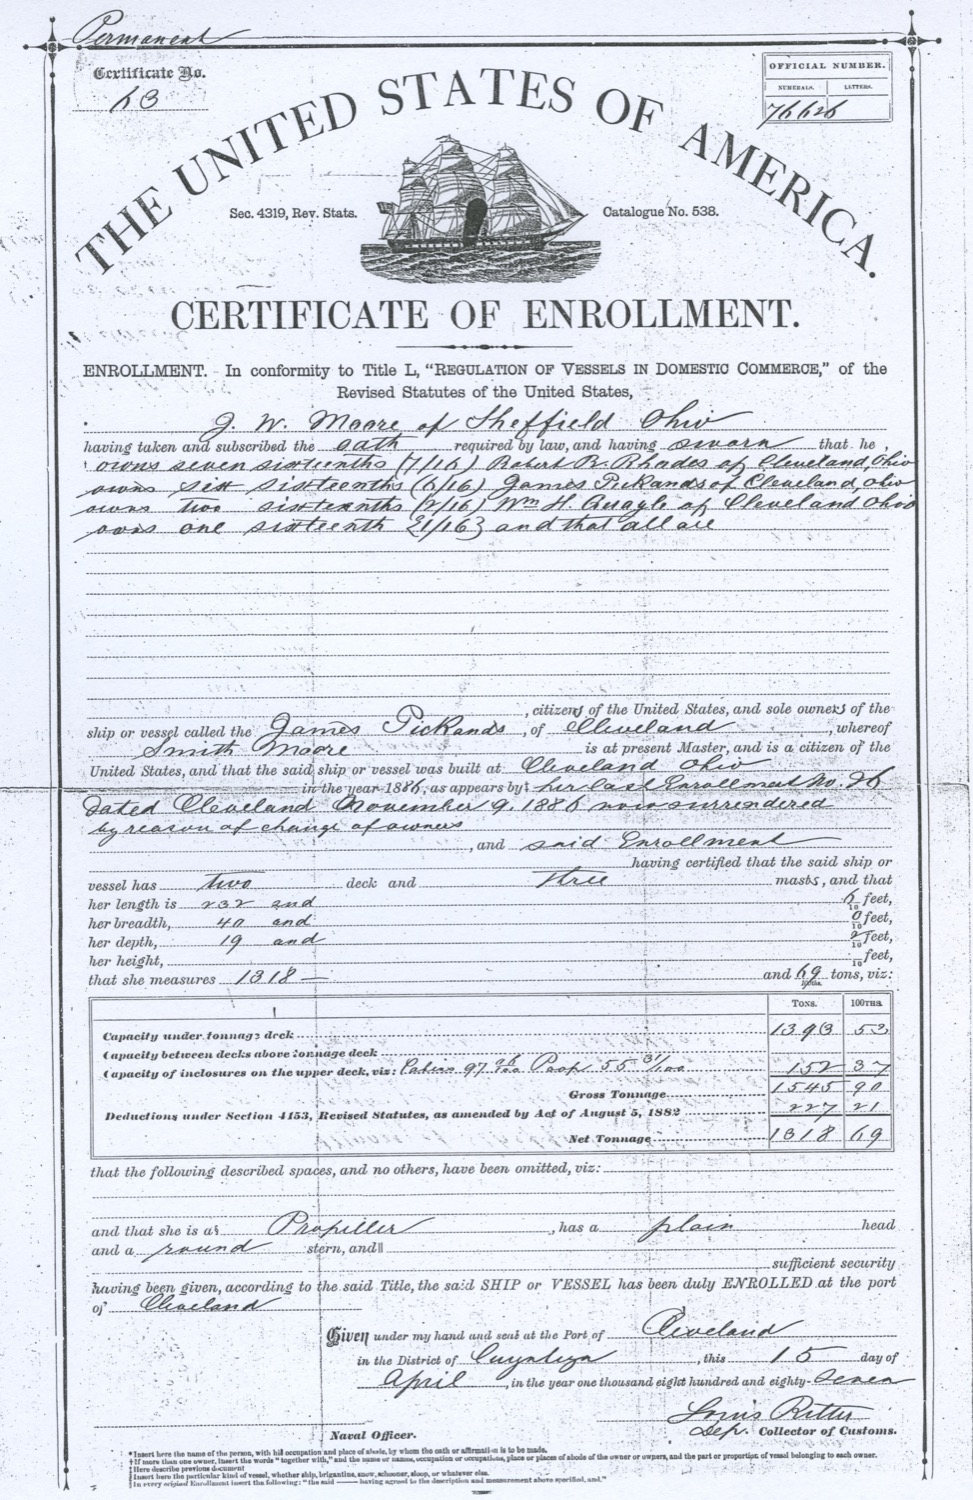 Permanent
Certificate No.
63
OFFICIAL NUMBER.
NUMERALS. LETTERS.
76626
THE UNITED STATES OF AMERICA.
Sec. 4319, Rev. Stats.
Catalogue No. 538.
CERTIFICATE OF ENROLLMENT.
ENROLLMENT. In conformity to Title L, "REGULATION OF VESSELS IN DOMESTIC COMMERCE," of the
Revised Statutes of the United States,
J. W. Moore of Sheffield Ohio
having taken and subscribed the oath required by law, and having sworn that he
owns seven sixteenths (7/16) Robert R. Rhodes of Cleveland, Ohio
owns six sixteenths (6/16) James Pickands of Cleveland, Ohio
owns two sixteenths (2/16) Wm H. Quayle of Cleveland Ohio
owns one sixteenth {1/16} and that all are
, citizens of the United States, and sole owners of the
ship or vessel called the James Pickands, of Cleveland, whereof
Smith Moore is at present Master, and is a citizen of the
United States, and that the said ship or vessel was built at Cleveland Ohio
in the year 1886, as appears by‡ her last Enrollment No. 26
dated Cleveland November 9. 1886 now surrendered
by reason of change of owners
, and said Enrollment
having certified that the said ship or
vessel has two deck and three masts, and that
her length is 232 and 6/10 feet,
her breadth, 40 and 0/10 feet,
her depth, 19 and 2/10 feet,
her height, /10 feet,
that she measures 1318 — and 69 tons, viz:
100ths.
TONS. 100THS.
Capacity under tonnage deck 1393 53
Capacity between decks above tonnage deck
Capacity of inclosures on the upper deck, viz: Cabin 97 06/100 Poop 55 31/100 152 37
Gross Tonnage 1545 90
Deductions under Section 4153, Revised Statutes, as amended by Act of August 5, 1882 227 21
Net Tonnage 1318 69
that the following described spaces, and no others, have been omitted, viz:
and that she is a§ Propeller, has a plain head
and a round stern, and‖
sufficient security
having been given, according to the said Title, the said SHIP or VESSEL has been duly ENROLLED at the port
of Cleveland
Given under my hand and seal at the Port of Cleveland
in the District of Cuyahoga, this 15 day of
April, in the year one thousand eight hundred and eighty-Seven
Louis Ritter
Naval Officer. Dep. Collector of Customs.
*Insert here the name of the person, with his occupation and place of abode, by whom the oath or affirmation is to be made.
†If more than one owner, insert the words "together with," and the name or names, occupation or occupations, place or places of abode of the owner or owners, and the part or proportion of vessel belonging to each owner.
‡Here describe previous document
§Insert here the particular kind of vessel, whether ship, brigantine, snow, schooner, sloop, or whatever else.
‖In every original Enrollment insert the following: "the said —— having agreed to the description and measurement above specified, and."